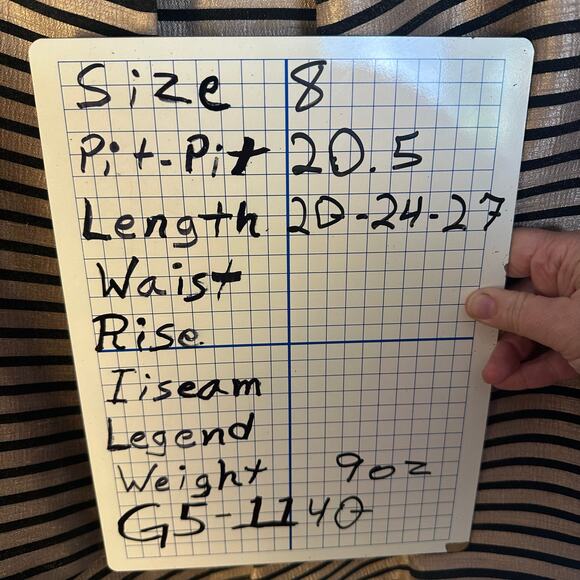 Size 8
Pit-Pit 20.5
Length 20-24-27
Waist
Rise
Iiseam
Legend
Weight 9oz
G5-1140